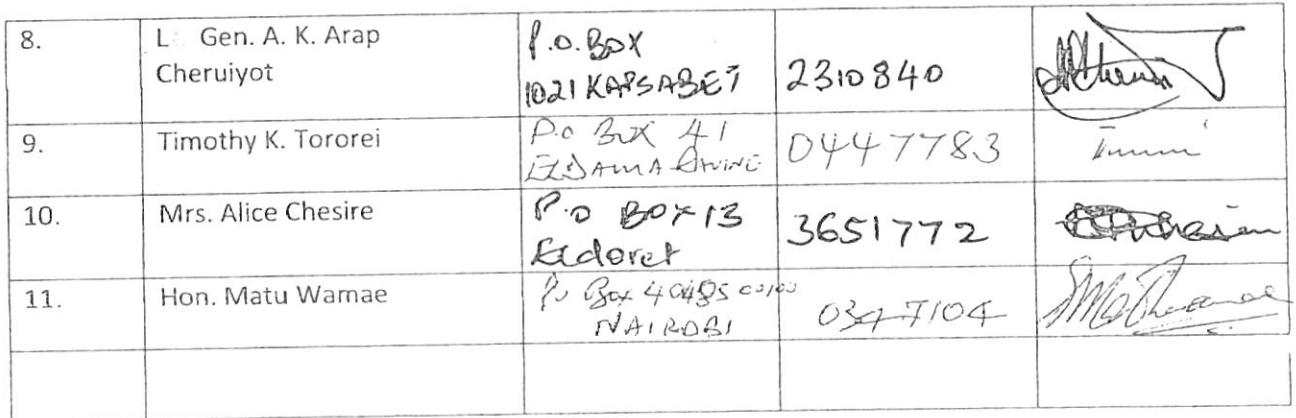 8.
L Gen. A. K. Arap
Cheruiyot
P.O. BOX
1021 KAPSABET
2310840
9.
Timothy K. Tororei
P.o Box 41
ELDAMA RAVINE
0447783
10.
Mrs. Alice Chesire
P.O BOX 13
Eldoret
3651772
11.
Hon. Matu Wamae
Po Box
NAIROBI